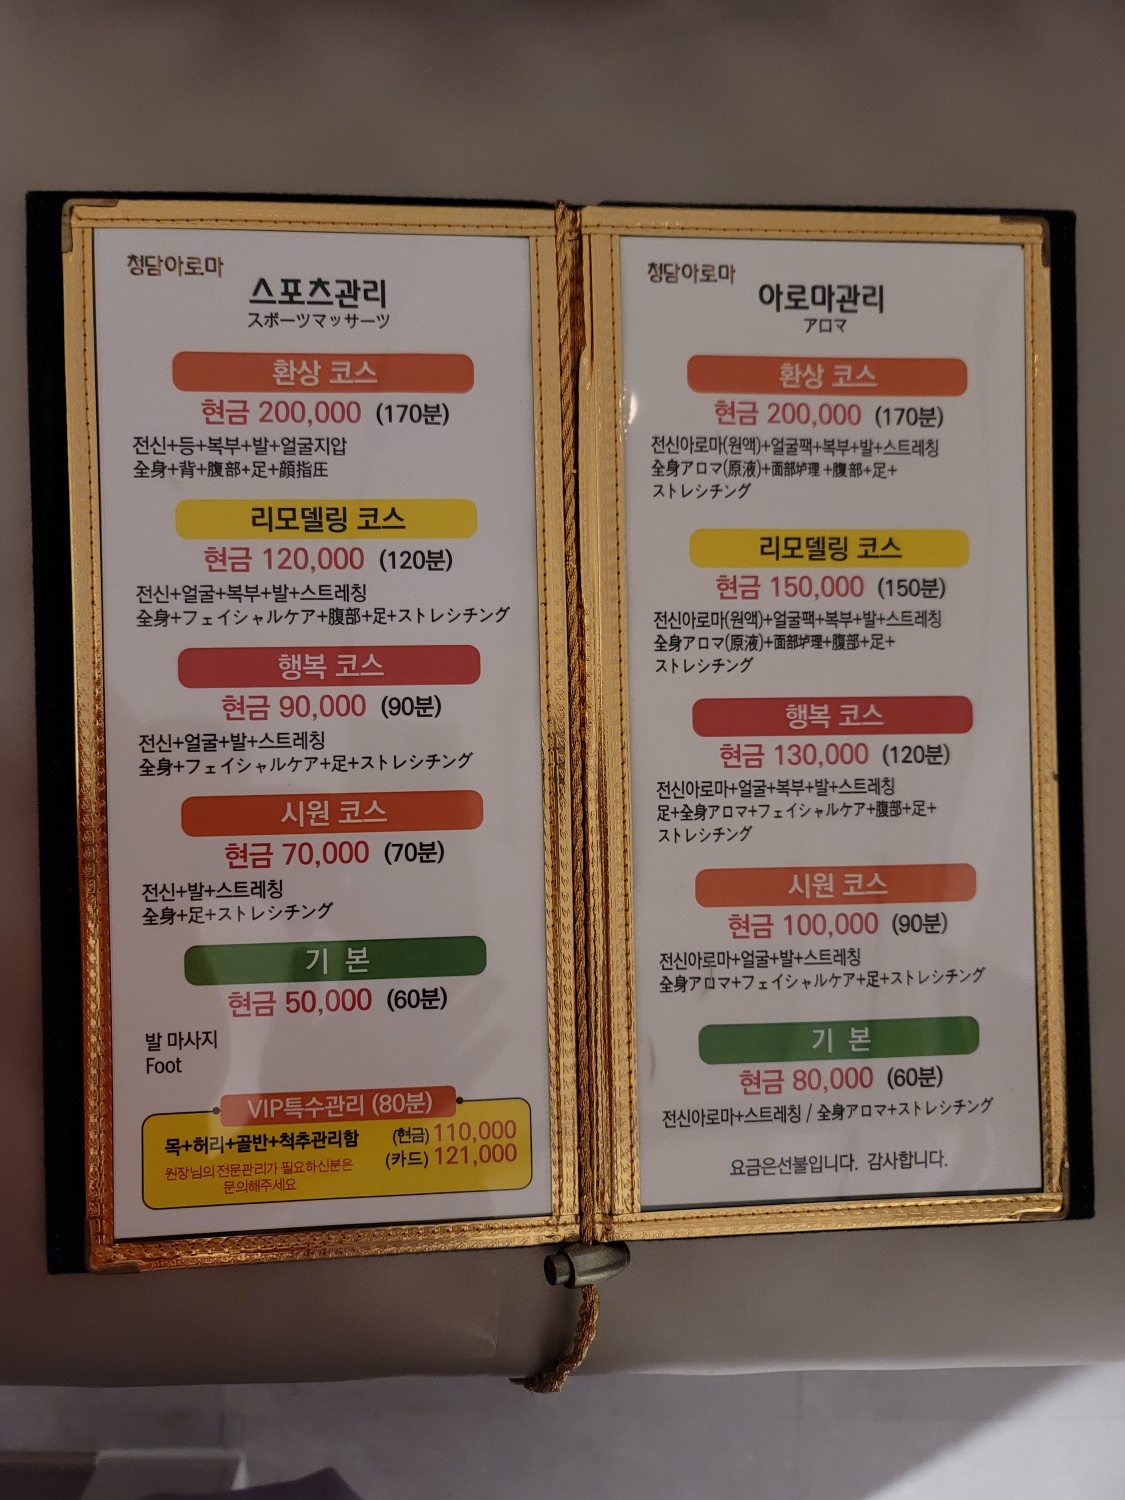 청담아로마
스포츠관리
スポーツマッサーツ
환상 코스
현금 200,000 (170분)
전신+등+복부+발+얼굴지압
全身+背+腹部+足+顔指圧
리모델링 코스
현금 120,000 (120분)
전신+얼굴+복부+발+스트레칭
全身+フェイシャルケア+腹部+足+ストレシチング
행복 코스
현금 90,000 (90분)
전신+얼굴+발+스트레칭
全身+フェイシャルケア+足+ストレシチング
시원 코스
현금 70,000 (70분)
전신+발+스트레칭
全身+足+ストレシチング
기 본
현금 50,000 (60분)
발 마사지
Foot
VIP특수관리 (80분)
목+허리+골반+척추관리함 (현금) 110,000
(카드) 121,000
원장님의 전문관리가 필요하신분은
문의해주세요
청담아로마
아로마관리
アロマ
환상 코스
현금 200,000 (170분)
전신아로마(원액)+얼굴팩+복부+발+스트레칭
全身アロマ(原液)+面部妒理+腹部+足+
ストレシチング
리모델링 코스
현금 150,000 (150분)
전신아로마(원액)+얼굴팩+복부+발+스트레칭
全身アロマ(原液)+面部妒理+腹部+足+
ストレシチング
행복 코스
현금 130,000 (120분)
전신아로마+얼굴+복부+발+스트레칭
足+全身アロマ+フェイシャルケア+腹部+足+
ストレシチング
시원 코스
현금 100,000 (90분)
전신아로마+얼굴+발+스트레칭
全身アロマ+フェイシャルケア+足+ストレシチング
기 본
현금 80,000 (60분)
전신아로마+스트레칭 / 全身アロマ+ストレシチング
요금은선불입니다. 감사합니다.